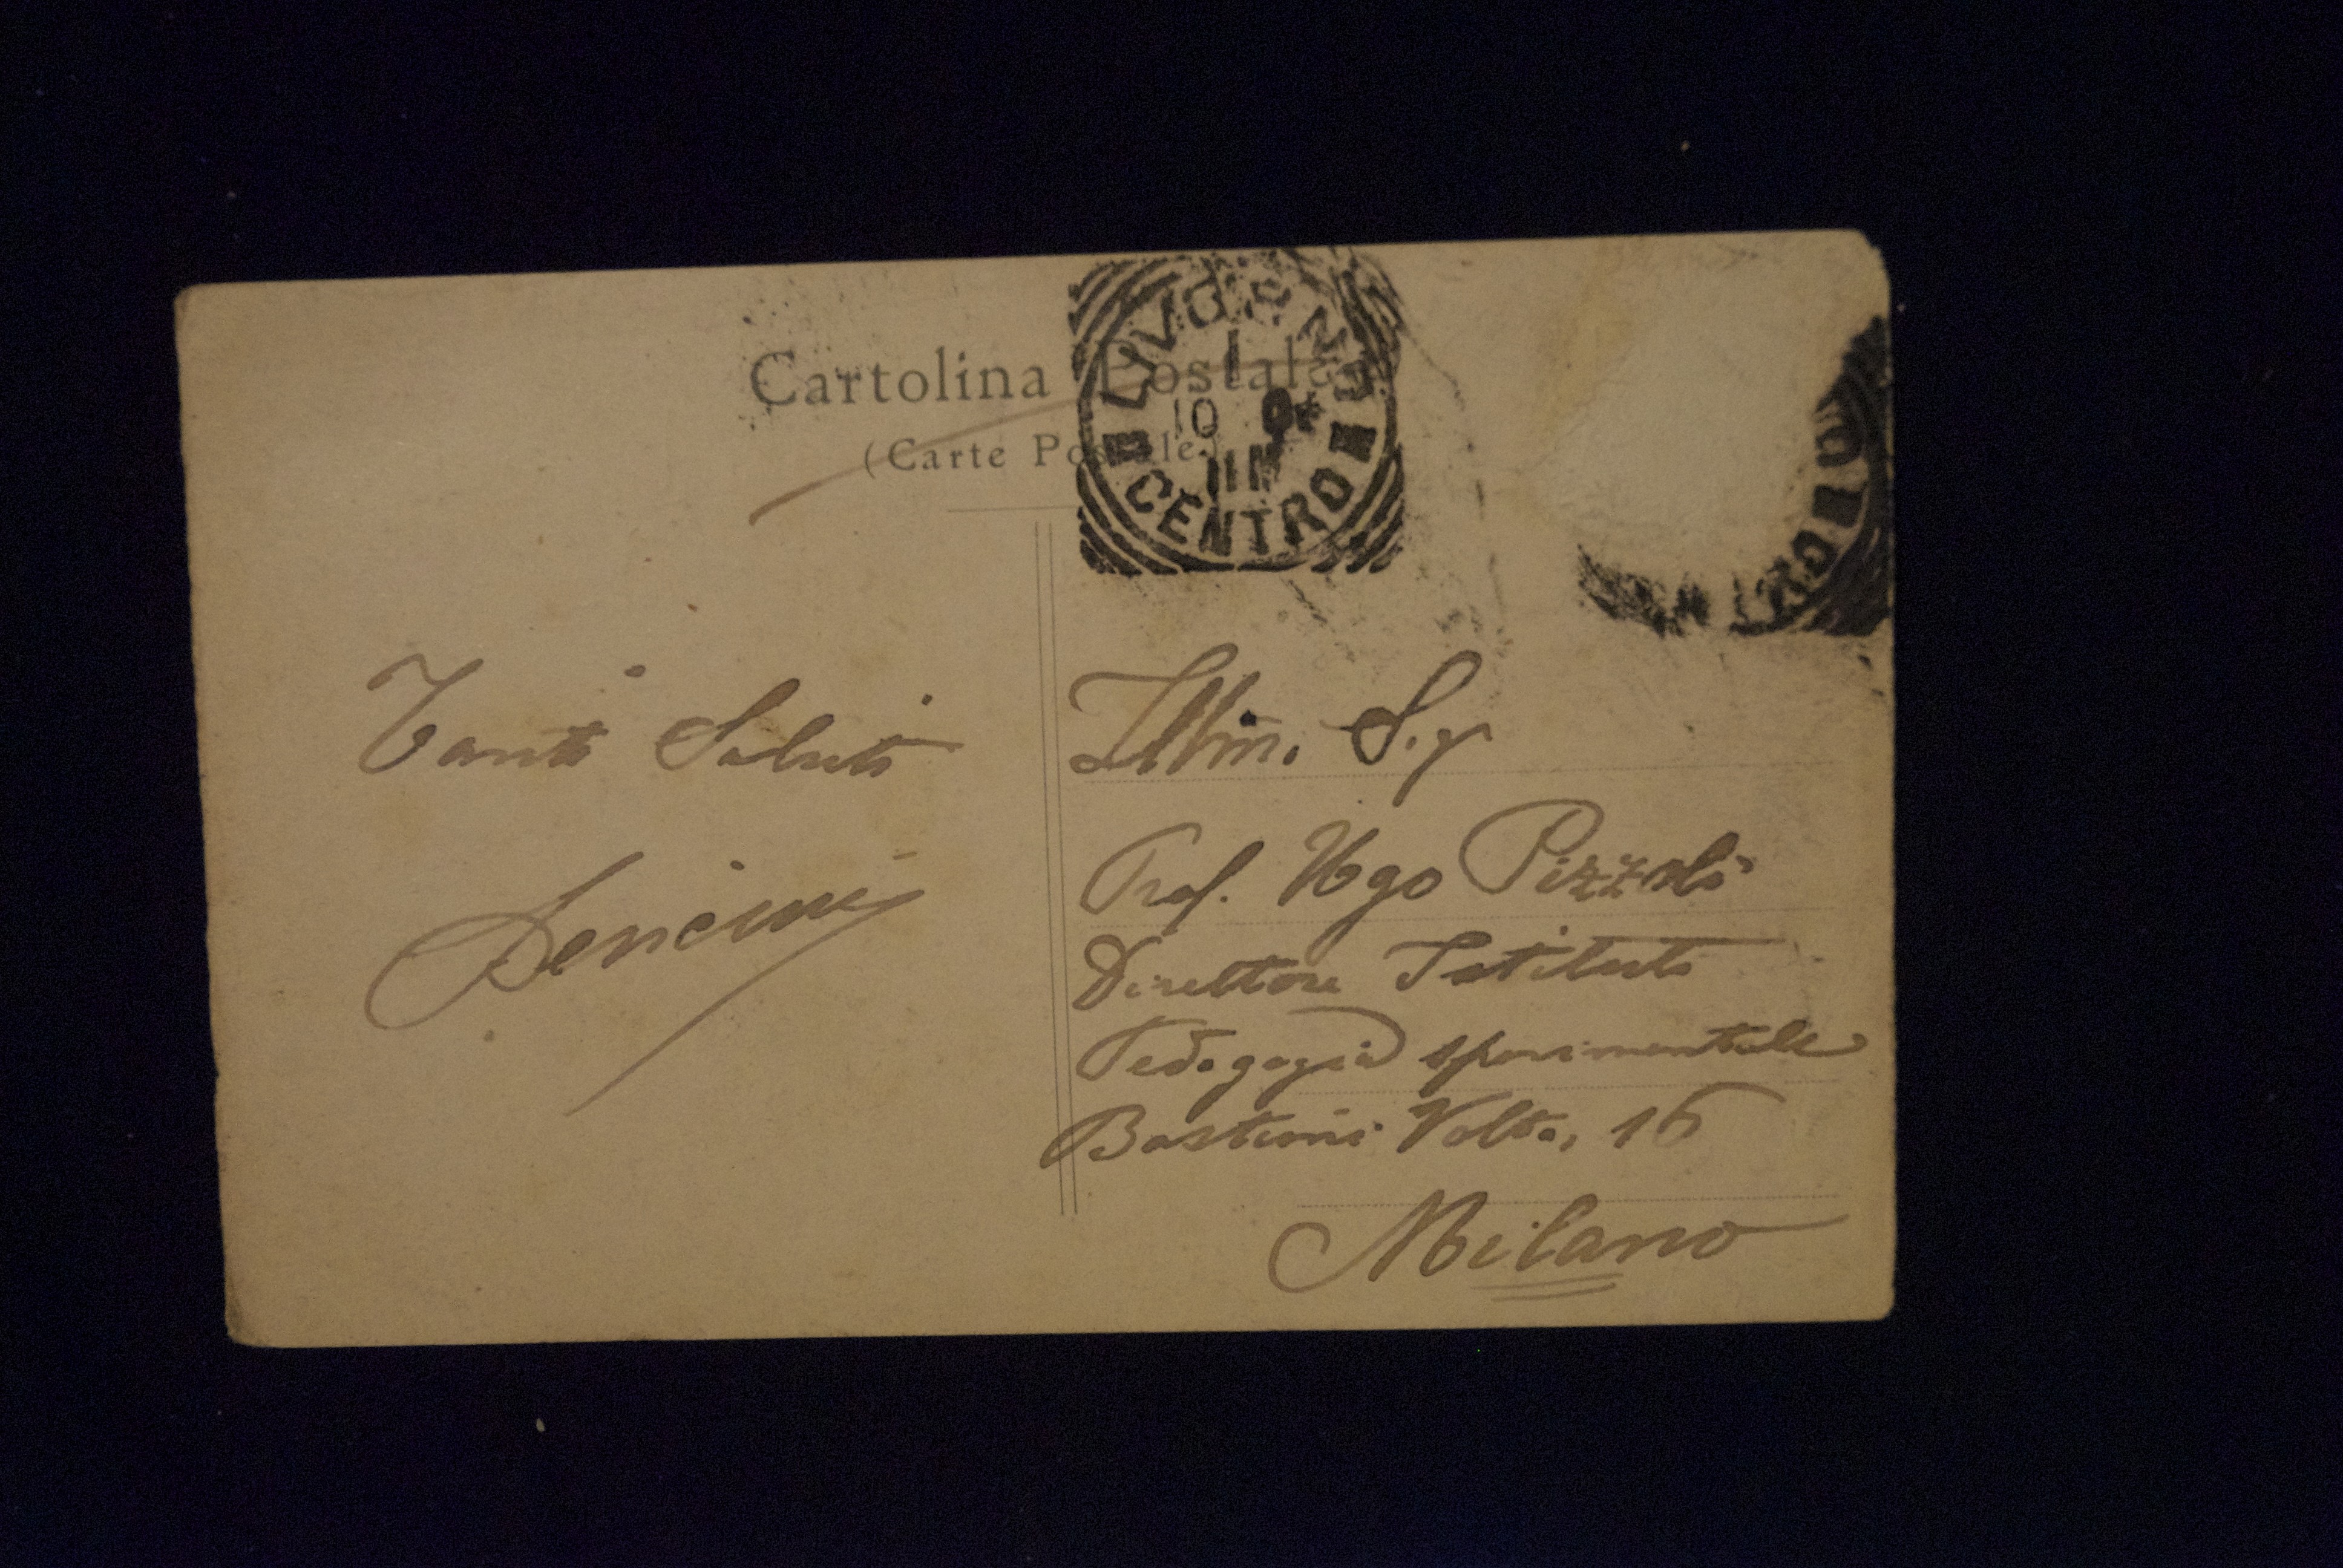 Cartolina Postale
(Carte Postale)
LIVORNO
1
10 04
11M
CENTRO
Tanti Saluti
Illm. S.g
Prof. Ugo Pizzoli
Direttore Istituto
Pedagogia sperimentale
Bastioni Volta, 16
Milano